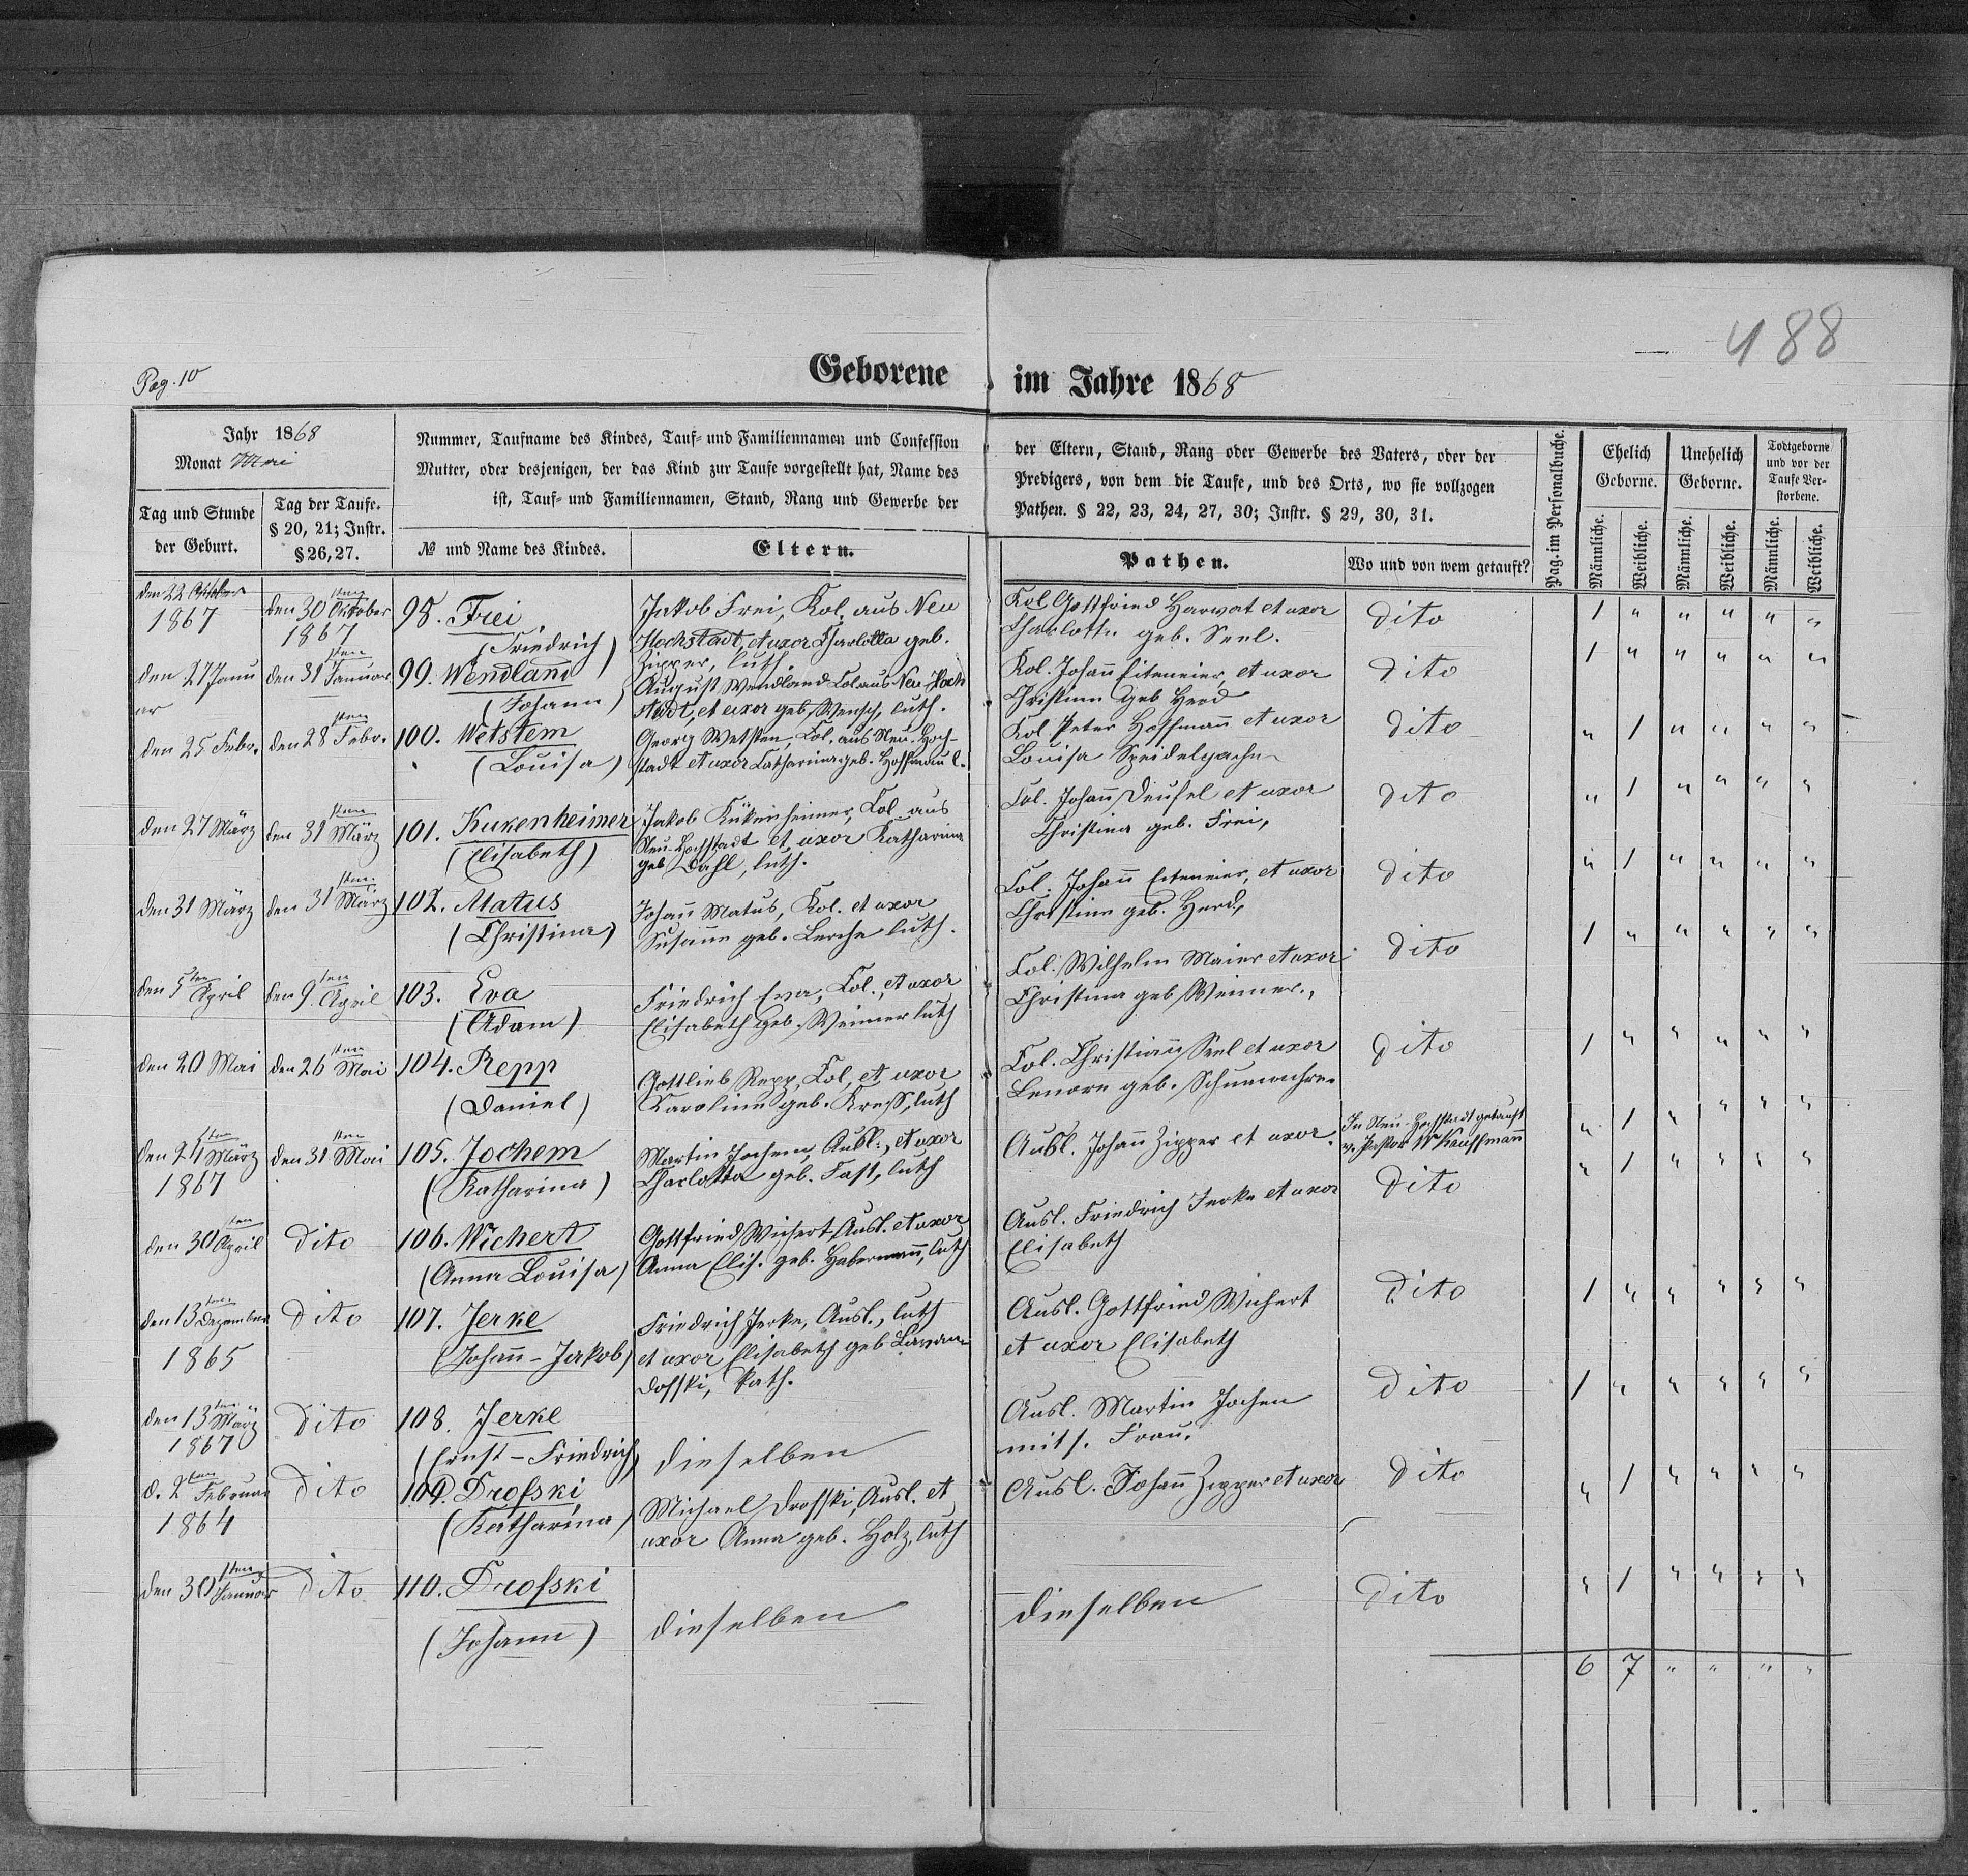 488
Pag. 10
Geborene im Jahre 1868
Jahr 1868
Monat Mai
Tag und Stunde
der Geburt.
Tag der Taufe.
§ 20, 21; Instr.
§ 26, 27.
Nummer, Taufname des Kindes, Tauf- und Familiennamen und Confession
Mutter, oder desjenigen, der das Kind zur Taufe vorgestellt hat, Name des
ist, Tauf- und Familiennamen, Stand, Rang und Gewerbe der
№ und Name des Kindes.
Eltern.
der Eltern, Stand, Rang oder Gewerbe des Vaters, oder der
Predigers, von dem die Taufe, und des Orts, wo sie vollzogen
Pathen. § 22, 23, 24, 27, 30; Instr. § 29, 30, 31.
Pathen.
Wo und von wem getauft?
Pag. im Personalbuche.
Ehelich
Geborne.
Unehelich
Geborne.
Todtgeborne
und vor der
Taufe Ver-
storbene.
Männliche.
Weibliche.
Männliche.
Weibliche.
Männliche.
Weibliche.
den 22 Oktober
1867
den 30sten Oktober
1867
98. Frei
(Friedrich)
Jakob Frei, Kol. aus Neu
Hochstadt, et uxor Charlotta geb.
Zipper, luth.
Kol. Gottfried Harwat et uxor
Charlotte geb. Seel.
dito
1 " " " " "
den 27 Janu
ar
den 31sten Januar
99. Wendland
(Johann)
August Wendland Col. aus Neu Hoch
stadt, et uxor geb. Wensch, luth.
Kol. Johann Eiteneier, et uxor
Christina geb Herd
dito
1 " " " " "
den 25 Febr.
den 28sten Febr.
100. Wetstem
(Louisa)
Georg Wetsten, Col. aus Neu-Hoch-
stadt et uxor Catharina geb. Hoffmann l.
Kol Peter Hoffmann et uxor
Louisa
dito
" 1 " " " "
den 27 März
den 31sten März
101. Kukenheimer
(Elisabeth)
Jakob Kükenheimer, Col. aus
Neu-Hochstadt et uxor Katharina
geb Dahl, luth.
Col. Johann Deusel et uxor
Christina geb. Frei,
dito
" 1 " " " "
den 31 März
den 31sten März
102. Matus
(Christina)
Johann Matus, Kol. et uxor
Susanna geb. Lerche luth.
Col. Johann Eiteneier, et uxor
Christina geb. Herd,
dito
" 1 " " " "
den 5ten April
den 9ten April
103. Eva
(Adam)
Friedrich Eva, Col., et uxor
Elisabeth geb. Weimer luth
Col. Wilhelm Maier et uxor
Christina geb Weimer.,
dito
1 " " " " "
den 20 Mai
den 26sten Mai
104. Repp
(Daniel)
Gottlieb Repp, Col, et uxor
Karolina geb. Kress, luth
Col. Christiann Seel et uxor
Lenore geb. Schumacher
dito
1 " " " " "
den 24sten März
1867
den 31sten Mai
105. Jochem
(Katharina)
Martin Jochem, Ausl., et uxor
Charlotta geb. Fast, luth
Ausl. Johann Zipper et uxor.
In Neu-Hochstadt getauft
v. Pastor W Kauffmann
" 1 " " " "
den 30sten April
dito
106. Wichert
(Anna Louisa)
Gottfried Wichert Ausl. et uxor
Anna Elis. geb. Habermann, luth
Ausl. Friedrich Jerke et uxor
Elisabeth
dito
" 1 " " " "
den 13ten Dezember
1865
dito
107. Jerke
(Johann-Jakob)
Friedrich Jerke, Ausl., luth
et uxor Elisabeth geb
dofski, kath.
Ausl. Gottfried Wichert
et uxor Elisabeth
dito
1 " " " " "
den 13ten März
1867
dito
108. Jerke
(Ernst-Friedrich)
dieselben
Ausl. Martin Jochen
mit s. Frau.
dito
1 " " " " "
d. 2ten Februar
1864
dito
109. Drofski
(Katharina)
Michael Drofski, Ausl. et
uxor Anna geb. Holz, luth
Ausl. Johann Zipper et uxor
dito
" 1 " " " "
den 30sten Januar
dito
110. Drofski
(Johann)
dieselben
dieselben
dito
" 1 " " " "
6 7 " " " "